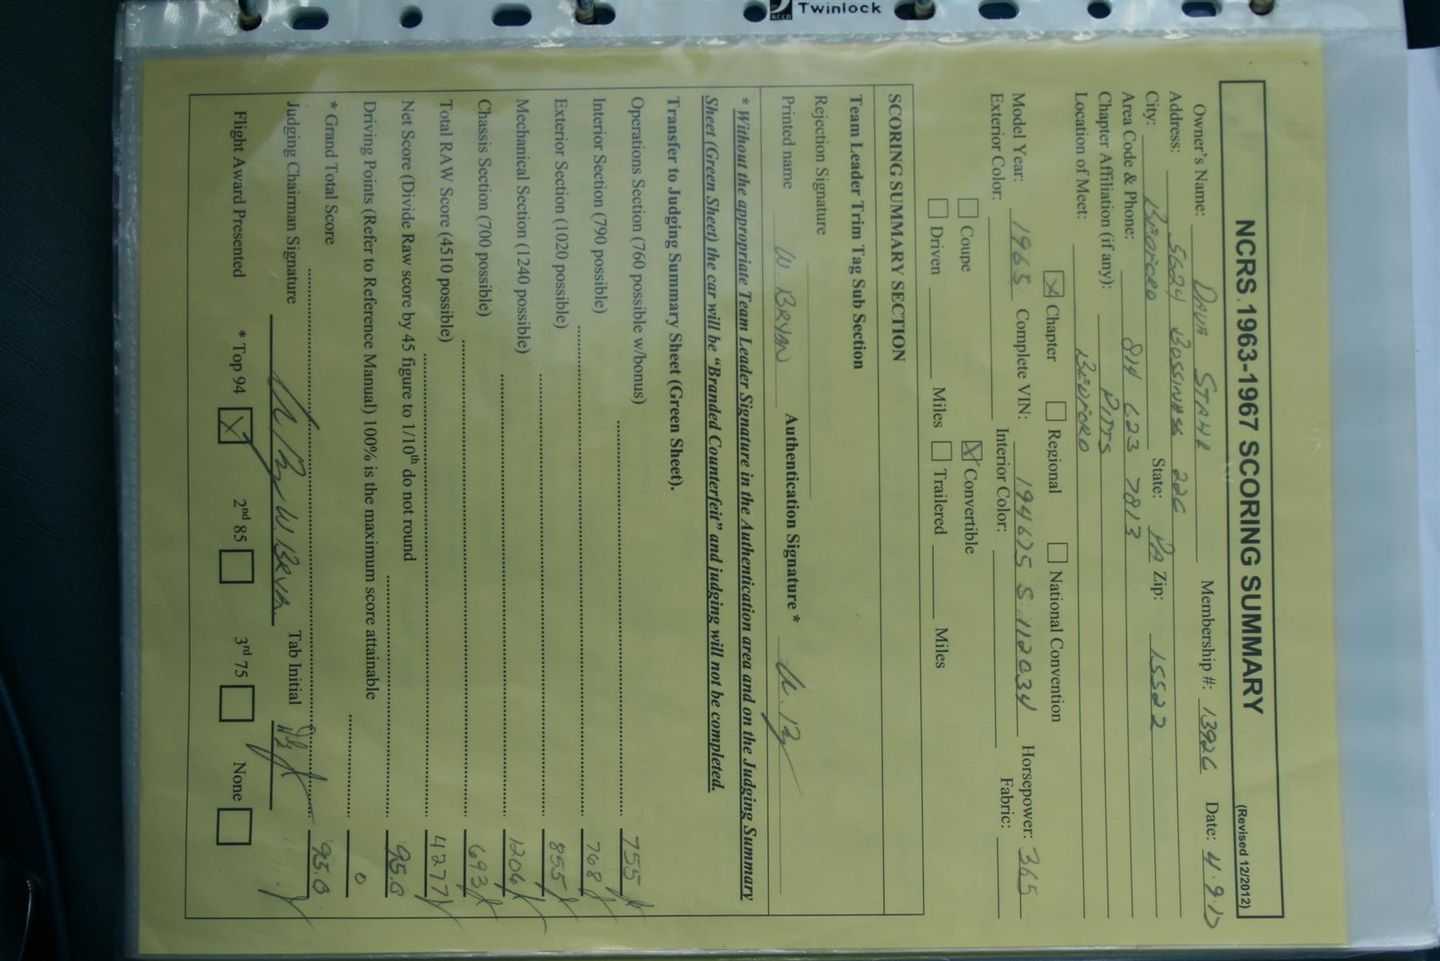 ACCO Twinlock
NCRS 1963-1967 SCORING SUMMARY
(Revised 12/2012)
Owner's Name: DAVE STAHL Membership #: 13926 Date: 4.9.17
Address: 5624 BUSSINESS 220
City: BEDFORD State: PA Zip: 15522
Area Code & Phone: 814 623 7813
Chapter Affiliation (if any): PITTS
Location of Meet: BEDFORD
Chapter Regional National Convention
Model Year: 1965 Complete VIN: 194675 S 112034 Horsepower: 365
Exterior Color: Interior Color: Fabric:
Coupe Convertible
Driven Miles Trailered Miles
SCORING SUMMARY SECTION
Team Leader Trim Tag Sub Section
Rejection Signature
Printed name W. BRYAN Authentication Signature *
* Without the appropriate Team Leader Signature in the Authentication area and on the Judging Summary
Sheet (Green Sheet) the car will be "Branded Counterfeit" and judging will not be completed.
Transfer to Judging Summary Sheet (Green Sheet).
Operations Section (760 possible w/bonus) 755
Interior Section (790 possible) 768
Exterior Section (1020 possible) 855
Mechanical Section (1240 possible) 1206
Chassis Section (700 possible) 693
Total RAW Score (4510 possible) 4277
Net Score (Divide Raw score by 45 figure to 1/10th do not round 95.0
Driving Points (Refer to Reference Manual) 100% is the maximum score attainable 0
* Grand Total Score 95.0
Judging Chairman Signature Tab Initial
Flight Award Presented * Top 94 2nd 85 3rd 75 None